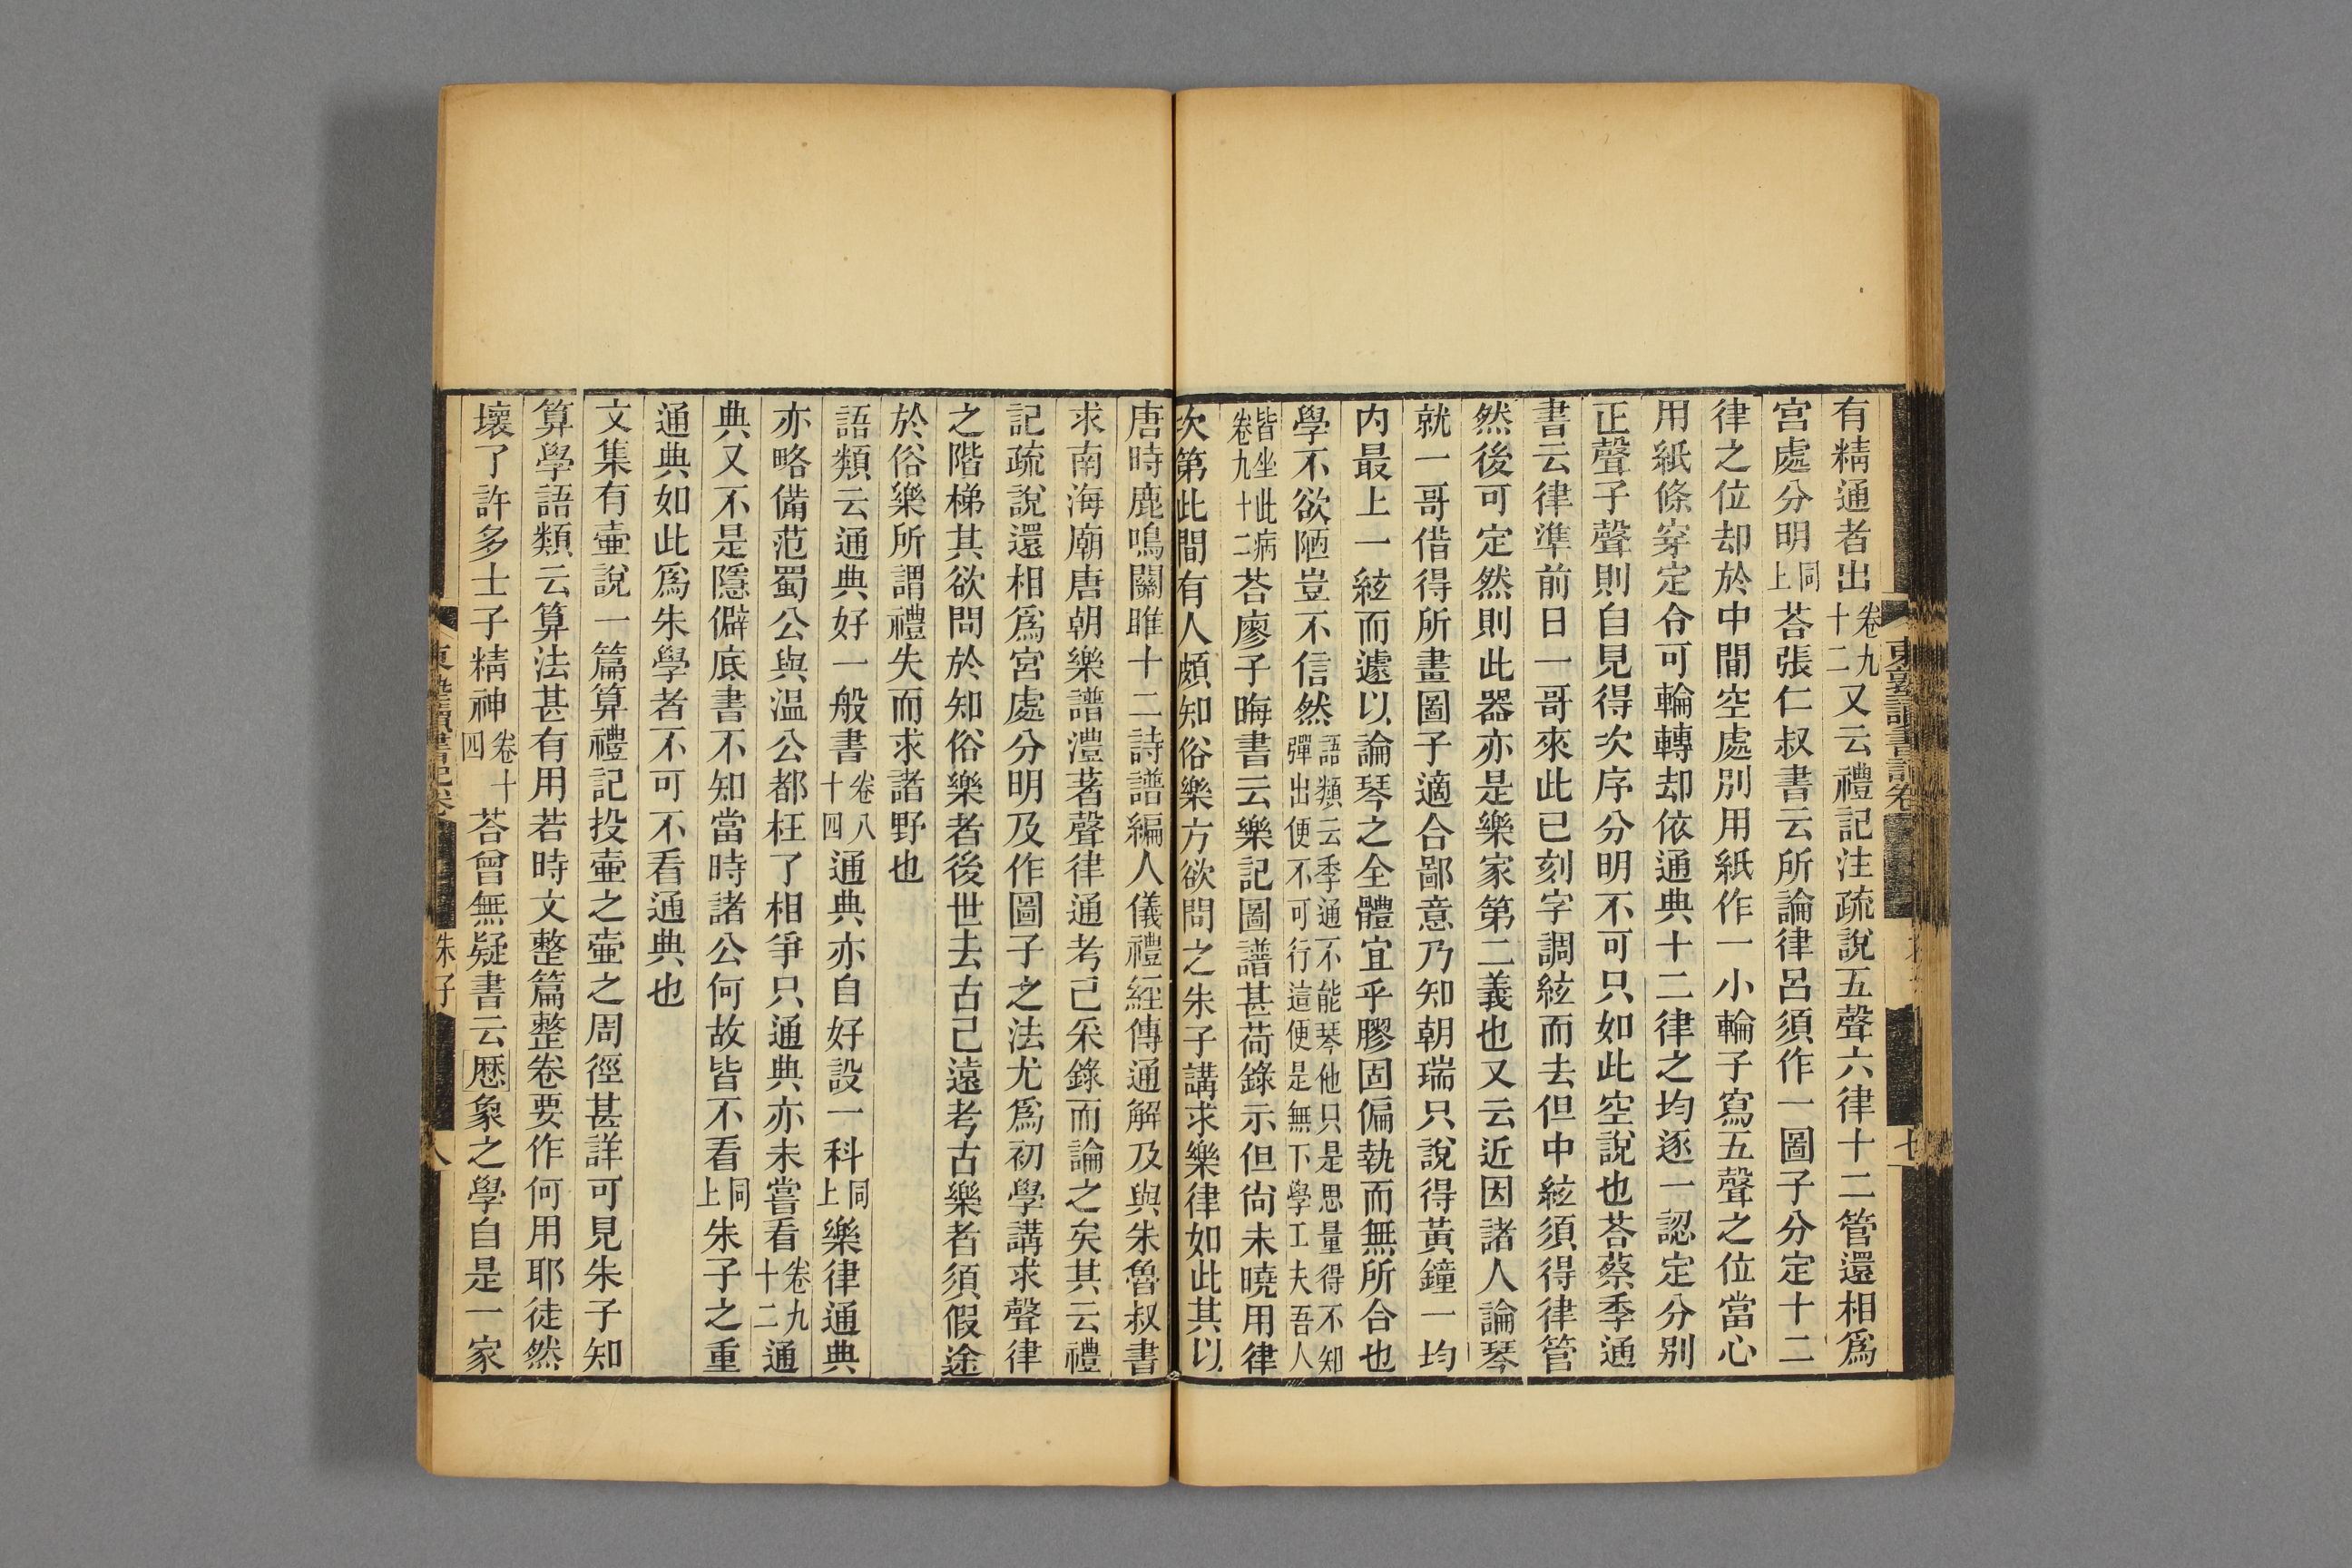 有精通者出卷九十二又云禮記注疏說五聲六律十二管還相爲
宮處分明同上荅張仁叔書云所論律呂須作一圖子分定十二
律之位却於中間空處別用紙作一小輪子寫五聲之位當心
用紙條穿定令可輪轉却依通典十二律之均逐一認定分別
正聲子聲則自見得次序分明不可只如此空說也荅蔡季通
書云律準前日一哥來此已刻字調絃而去但中絃須得律管
然後可定然則此器亦是樂家第二義也又云近因諸人論琴
就一哥借得所畫圖子適合鄙意乃知朝瑞只說得黃鐘一均
內最上一絃而遽以論琴之全體宜乎膠固偏執而無所合也
學不欲陋豈不信然語類云季通不能琴他只是思量得不知彈出便不可行這便是無下學工夫吾人
皆坐此病卷九十二荅廖子晦書云樂記圖譜甚荷錄示但尙未曉用律
次第此間有人頗知俗樂方欲問之朱子講求樂律如此其以
唐時鹿鳴關雎十二詩譜編入儀禮經傳通解及與朱魯叔書
求南海廟唐朝樂譜澧著聲律通考已采錄而論之矣其云禮
記疏說還相爲宮處分明及作圖子之法尤爲初學講求聲律
之階梯其欲問於知俗樂者後世去古已遠考古樂者須假途
於俗樂所謂禮失而求諸野也
語類云通典好一般書卷八十四通典亦自好設一科同上樂律通典
亦略備范蜀公與温公都枉了相爭只通典亦未嘗看卷九十二通
典又不是隱僻底書不知當時諸公何故皆不看同上朱子之重
通典如此爲朱學者不可不看通典也
文集有壷說一篇算禮記投壷之壷之周徑甚詳可見朱子知
算學語類云算法甚有用若時文整篇整卷要作何用耶徒然
壞了許多士子精神卷十四荅曾無疑書云厯象之學自是一家
東塾讀書記卷
七
東塾讀書記卷
朱子
八